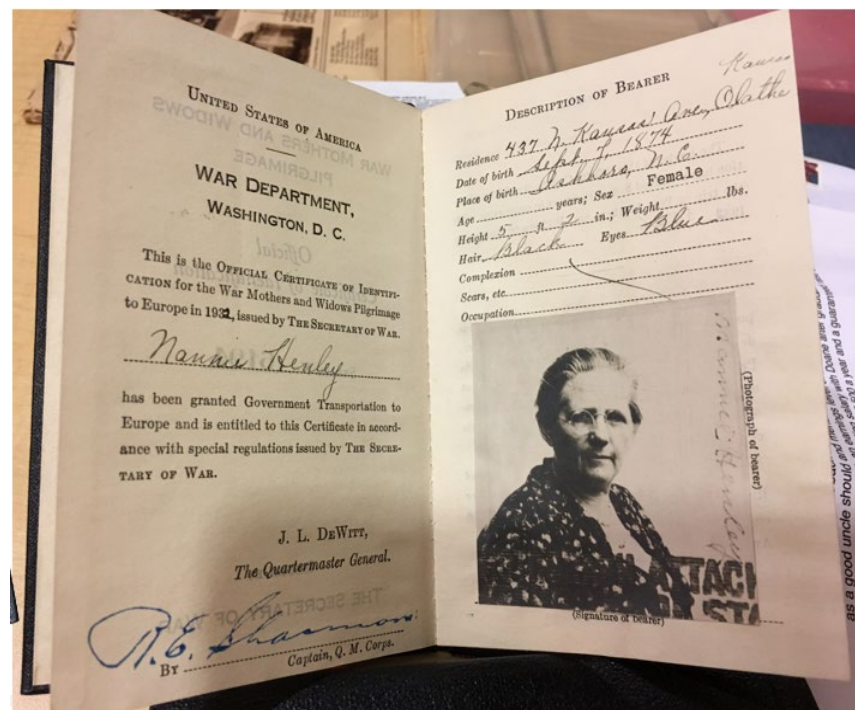 UNITED STATES OF AMERICA
WAR DEPARTMENT,
WASHINGTON, D. C.
This is the OFFICIAL CERTIFICATE OF IDENTIFI-
CATION for the War Mothers and Widows Pilgrimage
to Europe in 1932, issued by THE SECRETARY OF WAR.
Nannie Henley
has been granted Government Transportation to
Europe and is entitled to this Certificate in accord-
ance with special regulations issued by THE SECRE-
TARY OF WAR.
J. L. DEWITT,
The Quartermaster General.
R. E. Shannon
BY
Captain, Q. M. Corps.
DESCRIPTION OF BEARER
Kansas
Residence 437 N. Kansas Ave, Olathe
Date of birth Sept. 7, 1874
Place of birth Ashboro, N. C.
Age years; Sex Female
Height 5 ft. 2 in.; Weight lbs.
Hair Black Eyes Blue
Complexion
Scars, etc.
Occupation
Nannie Henley
(Photograph of bearer)
(Signature of bearer)
as a good uncle should